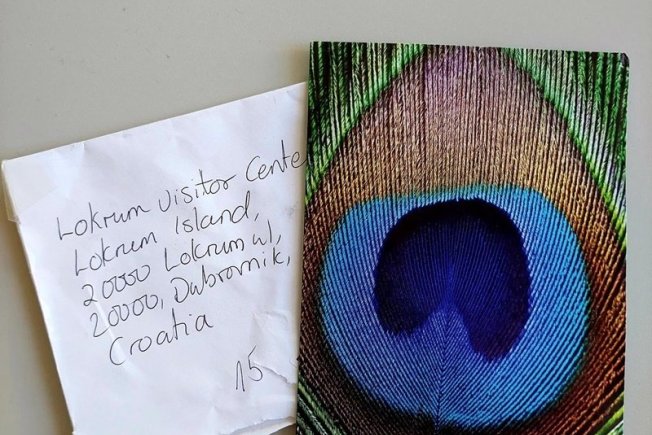 Lokrum Visitor Cente
Lokrum Island,
20000 Lokrum ul,
20000, Dubrovnik,
Croatia
15